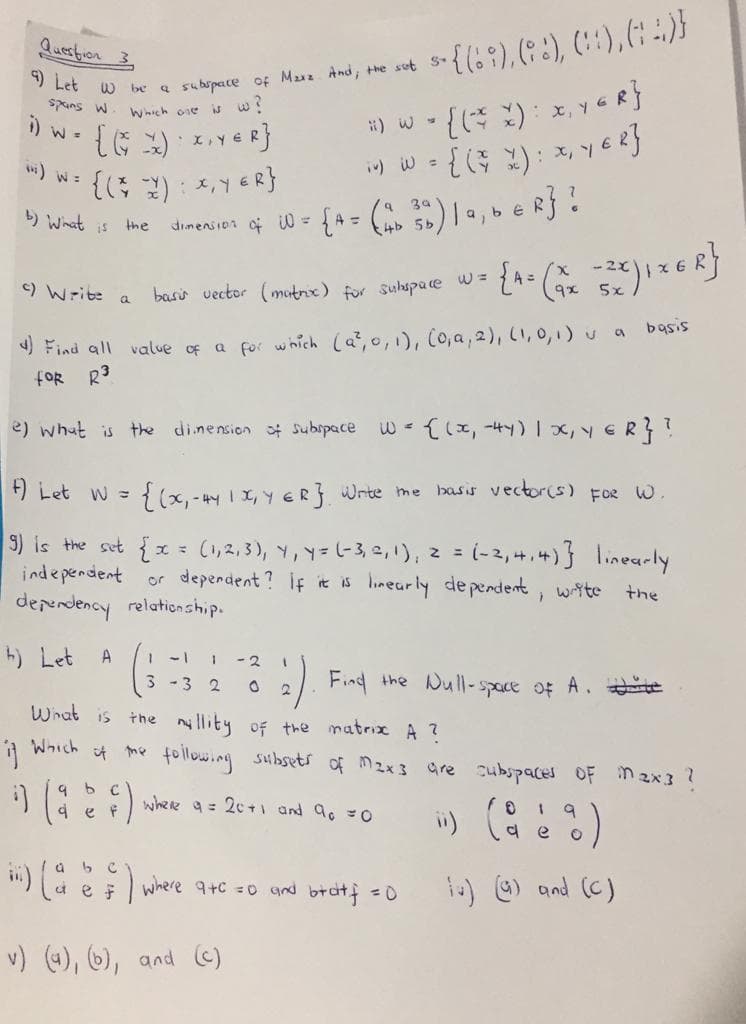 Question 3
a) Let W be a subspace of M2x2. And, the set S= {(1 0 / 0 1), (0 1 / 1 0), (1 1 / 1 1), (-1 1 / 1 -1)}
spans W. Which one is W?
i) W = {(x y / y -x) : x, y ∈ R}
ii) W = {(-x y / y x) : x, y ∈ R}
iii) W = {(x -y / y x) : x, y ∈ R}
iv) W = {(x y / y x) : x, y ∈ R}
b) What is the dimension of W = {A = (a 3a / 4b 5b) | a, b ∈ R} ?
c) Write a basis vector (matrix) for subspace W = {A = (x -2x / 9x 5x) | x ∈ R}
d) Find all value of a for which (a², 0, 1), (0, a, 2), (1, 0, 1) is a basis
FOR R³
e) What is the dimension of subspace W = {(x, -4y) | x, y ∈ R} ?
f) Let W = {(x, -4y | x, y ∈ R}. Write the basis vector(s) FOR W.
g) is the set {x = (1,2,3), y, y = (-3,2,1), z = (-2,4,4)} linearly
independent or dependent? If it is linearly dependent, write the
dependency relationship.
h) Let A (1 -1 1 -2 1 / 3 -3 2 0 2). Find the Null-space of A.
What is the nullity of the matrix A ?
i) Which of the following subsets of M2x3 are subspaces OF M2x3 ?
i) (a b c / d e f) where a = 2c+1 and =0
ii) (0 1 a / d e 0)
iii) (a b c / d e f) where a+c =0 and b+d+f = 0
iv) (a) and (c)
v) (a), (b), and (c)